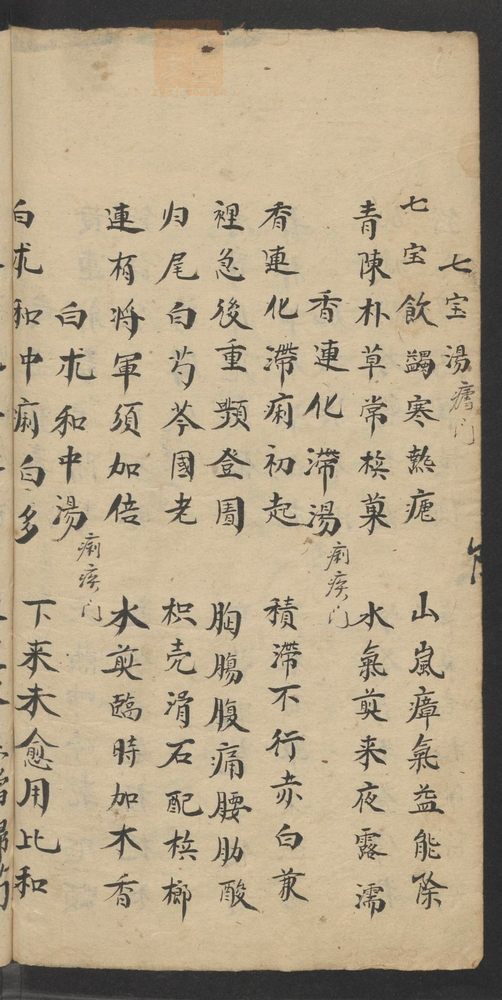 七宝湯 瘧門
七宝飲蠲寒熱瘧 山嵐瘴氣益能除
青陳朴草常檳菓 水氣煎来夜露濡
香連化滯湯 痢疾门
香連化滯痢初起 積滯不行赤白兼
裡急後重頻登圊 胸膓腹痛腰肋酸
归尾白芍芩國老 枳壳滑石配檳榔
連栢将軍須加倍 水煎臨時加木香
白朮和中湯 痢疾门
白朮和中痢白多 下来未愈用比和